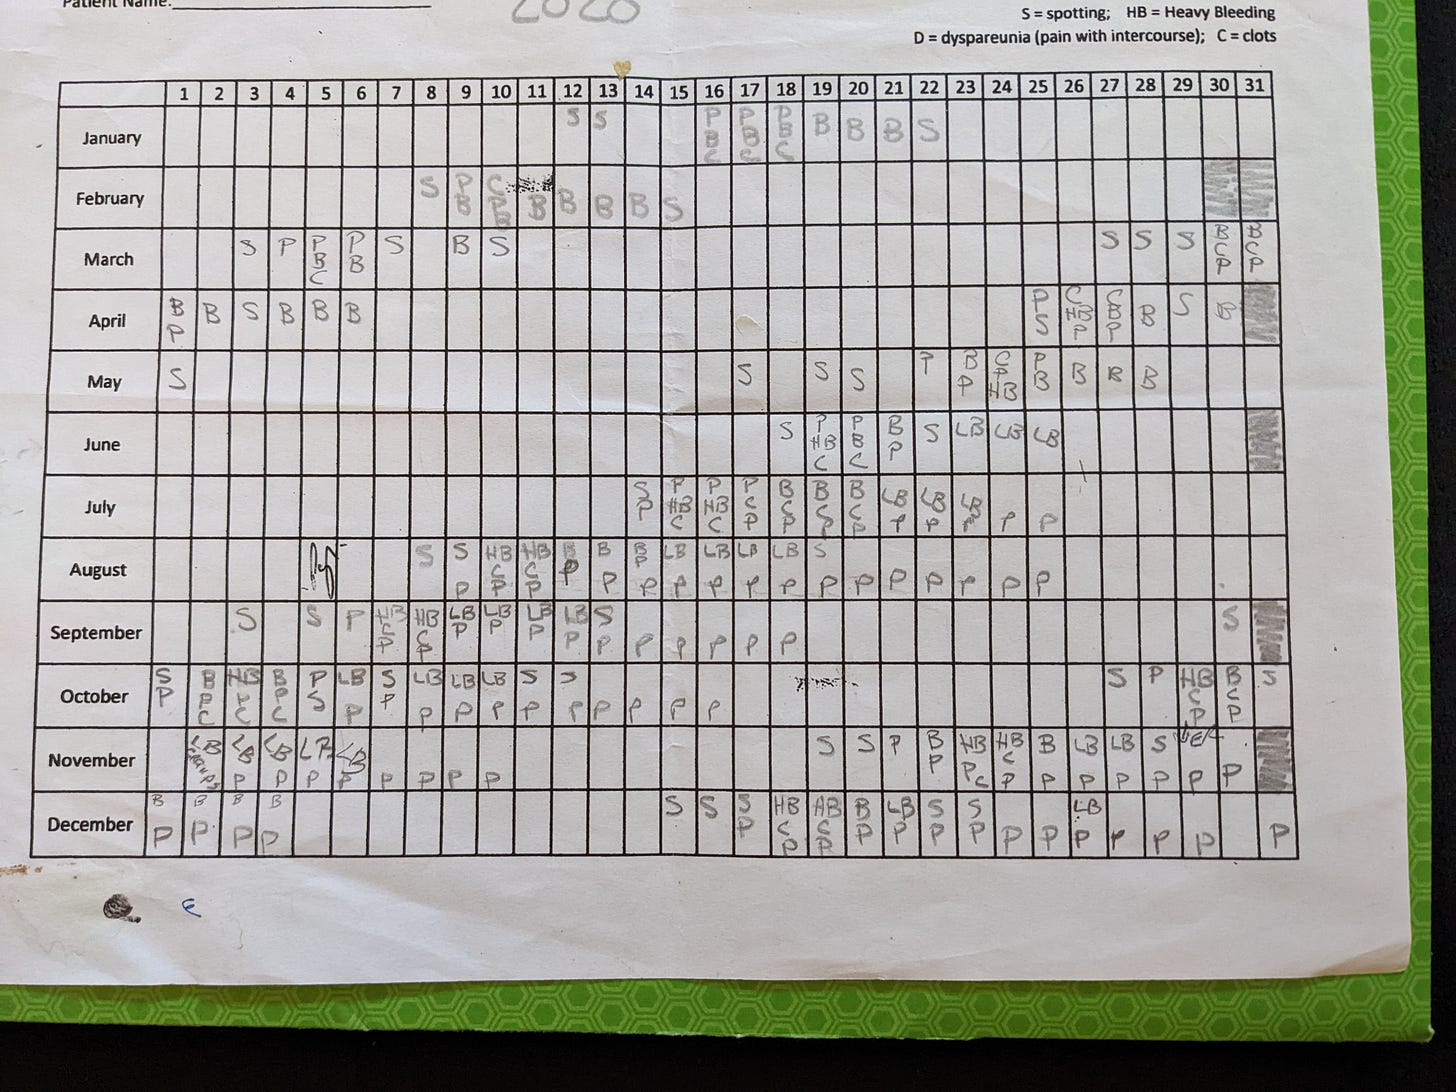 Patient Name:
2020
S = spotting; HB = Heavy Bleeding
D = dyspareunia (pain with intercourse); C = clots
1 2 3 4 5 6 7 8 9 10 11 12 13 14 15 16 17 18 19 20 21 22 23 24 25 26 27 28 29 30 31
January S S PBC PBC PBC B B B S
February S PB CPB B B B B S
March S P PBC PB S B S S S S BCP BCP
April BP B S B B B PS CHBP CBP B S B
May S S S S P BP CPHB PB B B B
June S PHBC PBC BP S LB LB LB
July SP PHBC PHBC PCP BCP BCP BCP LBP LBP LBP P P
August S SP HBCP HBCP BP BP BP LBP LBP LBP LBP SP P P P P P P
September S S P HBCP HBCP LBP LBP LBP LBP SP P P P P P S
October SP BPC HBPC BPC PS LBP SP LBP LBP LBP SP SP P P P P S P HBCP BCP S
November LB LBP LBP LBP LBP P P P P S S P BP HBPC HBCP BP LBP LBP SP P P
December BP BP BP BP S S SP HBCP HBCP BP LBP SP SP P P LBP P P P P